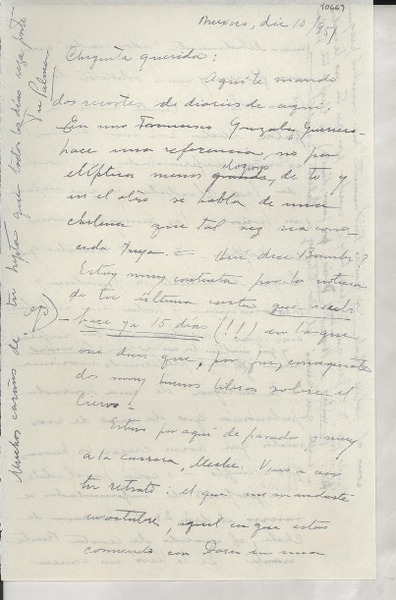 10669
Mexico, dic 10/951
Chiquita querida:
Aquí te mando
dos recortes de diarios de aquí.
En uno Francisco González Guerrero
hace una referencia no por
elíptica menos grande, de ti y
en el otro se habla de una
chilena que tal vez sea cono-
cida tuya. = Qué dice
Estoy muy contenta por la noticia
de tu última carta que recibí
hace ya 15 días (!!) en la que
me dices que, por fin, conseguiste
dos muy buenos libros sobre el
Ciervo!
Estuvo por aquí de pasada y muy
a la carrera, Meche. Vino a ver
tu retrato: el que me mandaste
en octubre, aquel en que estás
comiendo con Doris en una
Muchos cariños de tu hijita que todos los días reza por ti
Tu Palma